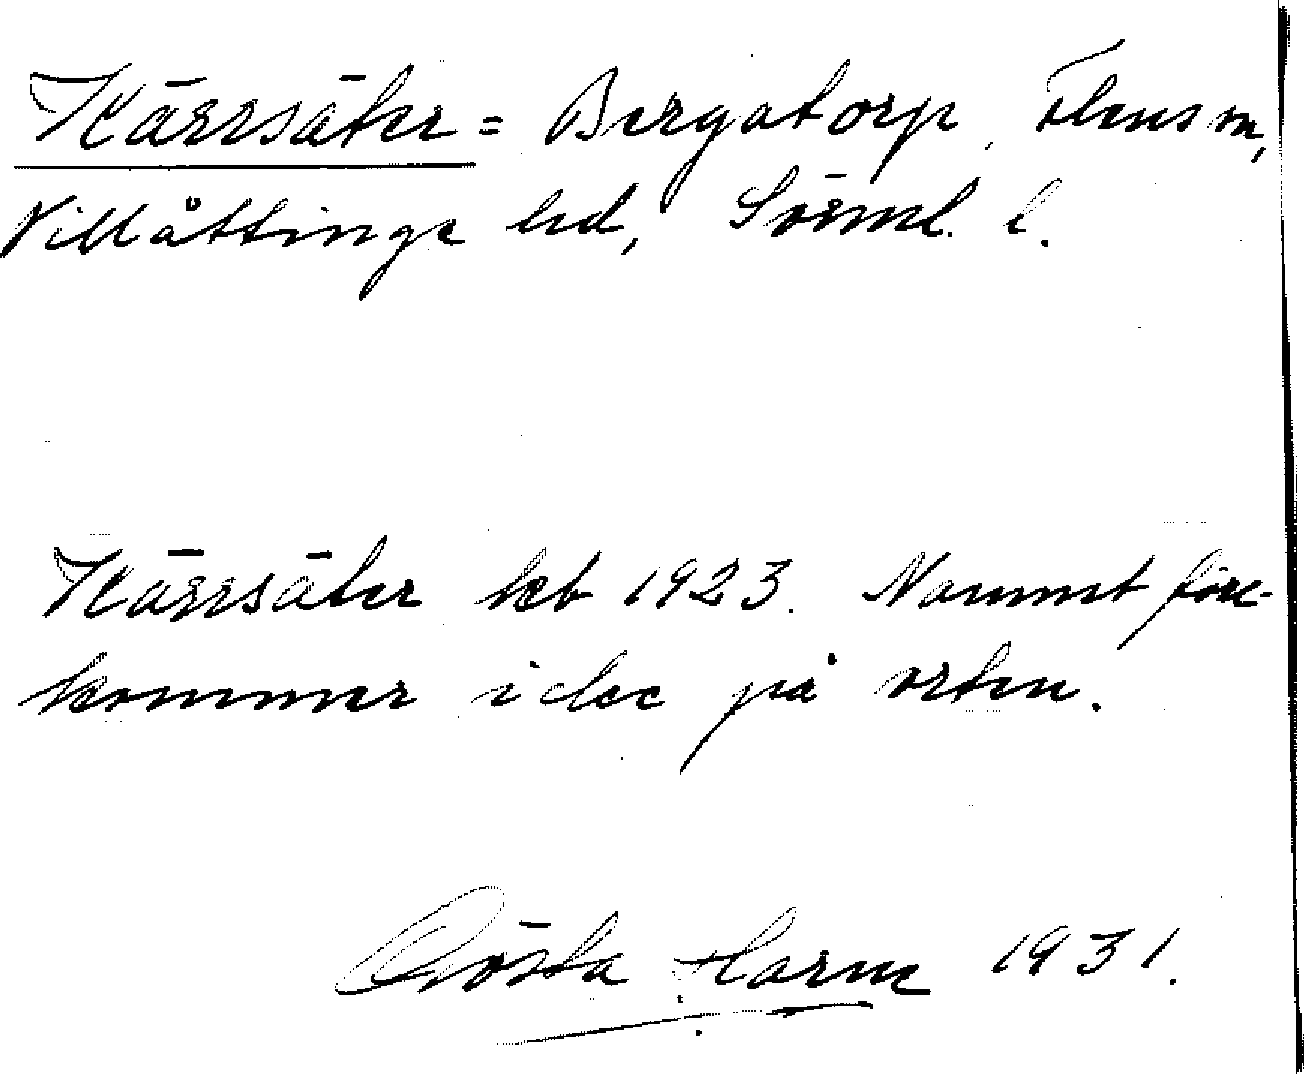 Kärrsäter = Bergatorp, Flens m,
Villåttinge hd, Sörml. l.
Kärrsäter kb 1923. Namnet före-
kommer icke på orten.
Gösta Harm 1931.